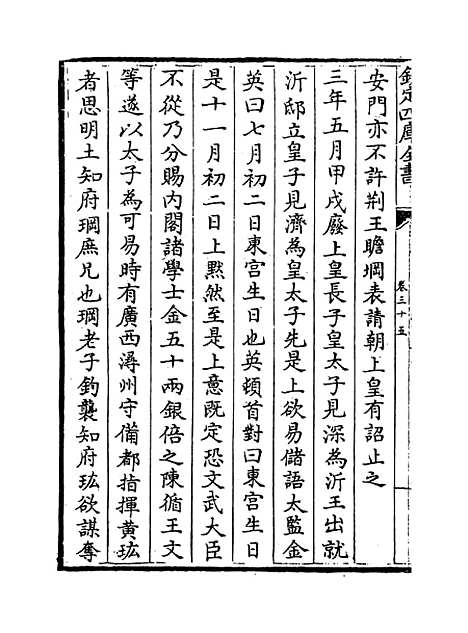 欽定四庫全書
卷三十五
安門亦不許荆王瞻堈表請朝上皇有詔止之
三年五月甲戌廢上皇長子皇太子見深為沂王出就
沂邸立皇子見濟為皇太子先是上欲易儲語太監金
英曰七月初二日東宫生日也英頓首對曰東宫生日
是十一月初二日上黙然至是上意既定恐文武大臣
不從乃分賜内閣諸學士金五十兩銀倍之陳循王文
等遂以太子為可易時有廣西潯州守備都指揮黄竑
者思明土知府㻏庶兄也㻏老子鈞襲知府竑欲謀奪